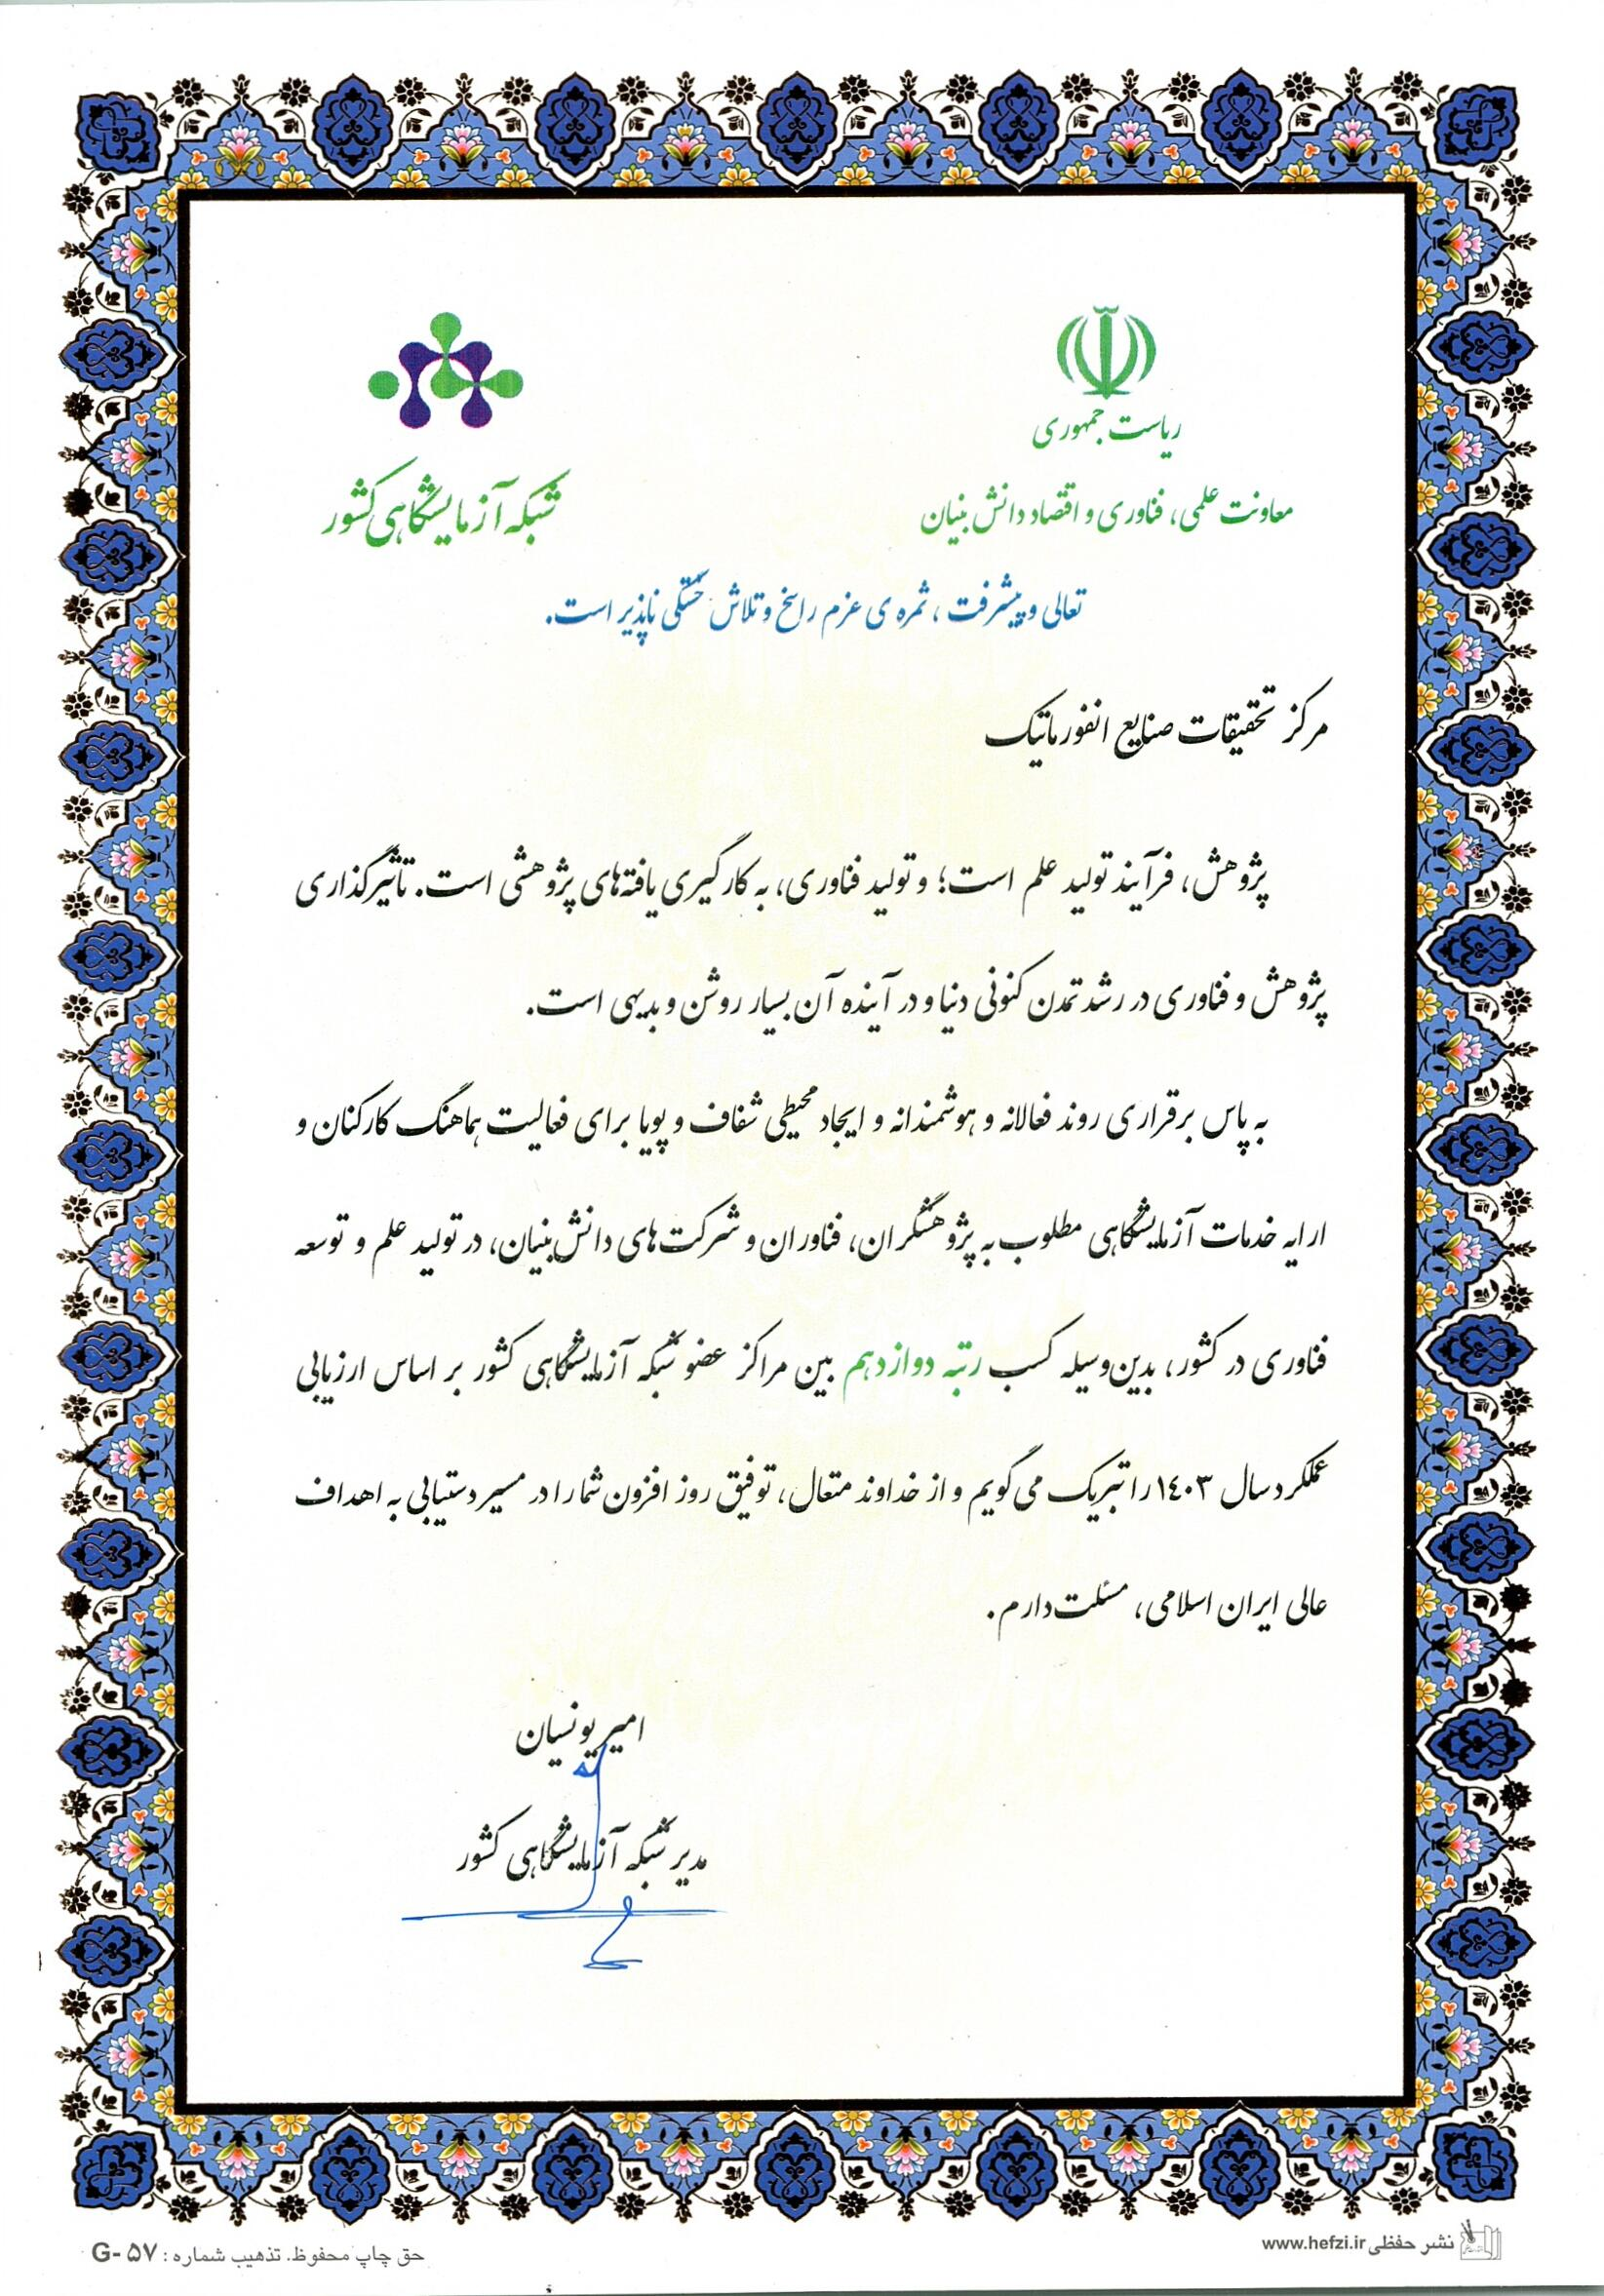 ریاست جمهوری
معاونت علمی، فناوری و اقتصاد دانش بنیان
شبکه آزمایشگاهی کشور
تعالی و پیشرفت ، ثمره ی عزم راسخ و تلاش خستگی ناپذیر است.
مرکز تحقیقات صنایع انفورماتیک
پژوهش، فرآیند تولید علم است؛ و تولید فناوری، به کارگیری یافته‌های پژوهشی است. تأثیرگذاری
پژوهش و فناوری در رشد تمدن کنونی دنیا و در آینده آن بسیار روشن و بدیهی است.
به پاس برقراری روند فعالانه و هوشمندانه و ایجاد محیطی شفاف و پویا برای فعالیت هماهنگ کارکنان و
ارایه خدمات آزمایشگاهی مطلوب به پژوهشگران، فناوران و شرکت‌های دانش‌بنیان، در تولید علم و توسعه
فناوری در کشور، بدین‌وسیله کسب رتبه دوازدهم بین مراکز عضو شبکه آزمایشگاهی کشور بر اساس ارزیابی
عملکرد سال ۱۴۰۳ را تبریک می گویم و از خداوند متعال، توفیق روز افزون شما را در مسیر دستیابی به اهداف
عالی ایران اسلامی، مسئلت دارم.
امیر یونسیان
مدیر شبکه آزمایشگاهی کشور
نشر حفظی www.hefzi.ir
حق چاپ محفوظ. تذهیب شماره : G-۵۷